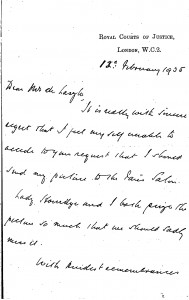 ROYAL COURTS OF JUSTICE,
LONDON, W.C.2.
12th February 1935
Dear Mr de Laszlo,
It is really with sincere
regret that I find myself unable to
accede to your request that I should
send my picture to the Paris Salon.
Lady and I both prize the
picture so much that we should sadly
miss it.
With kindest remembrances